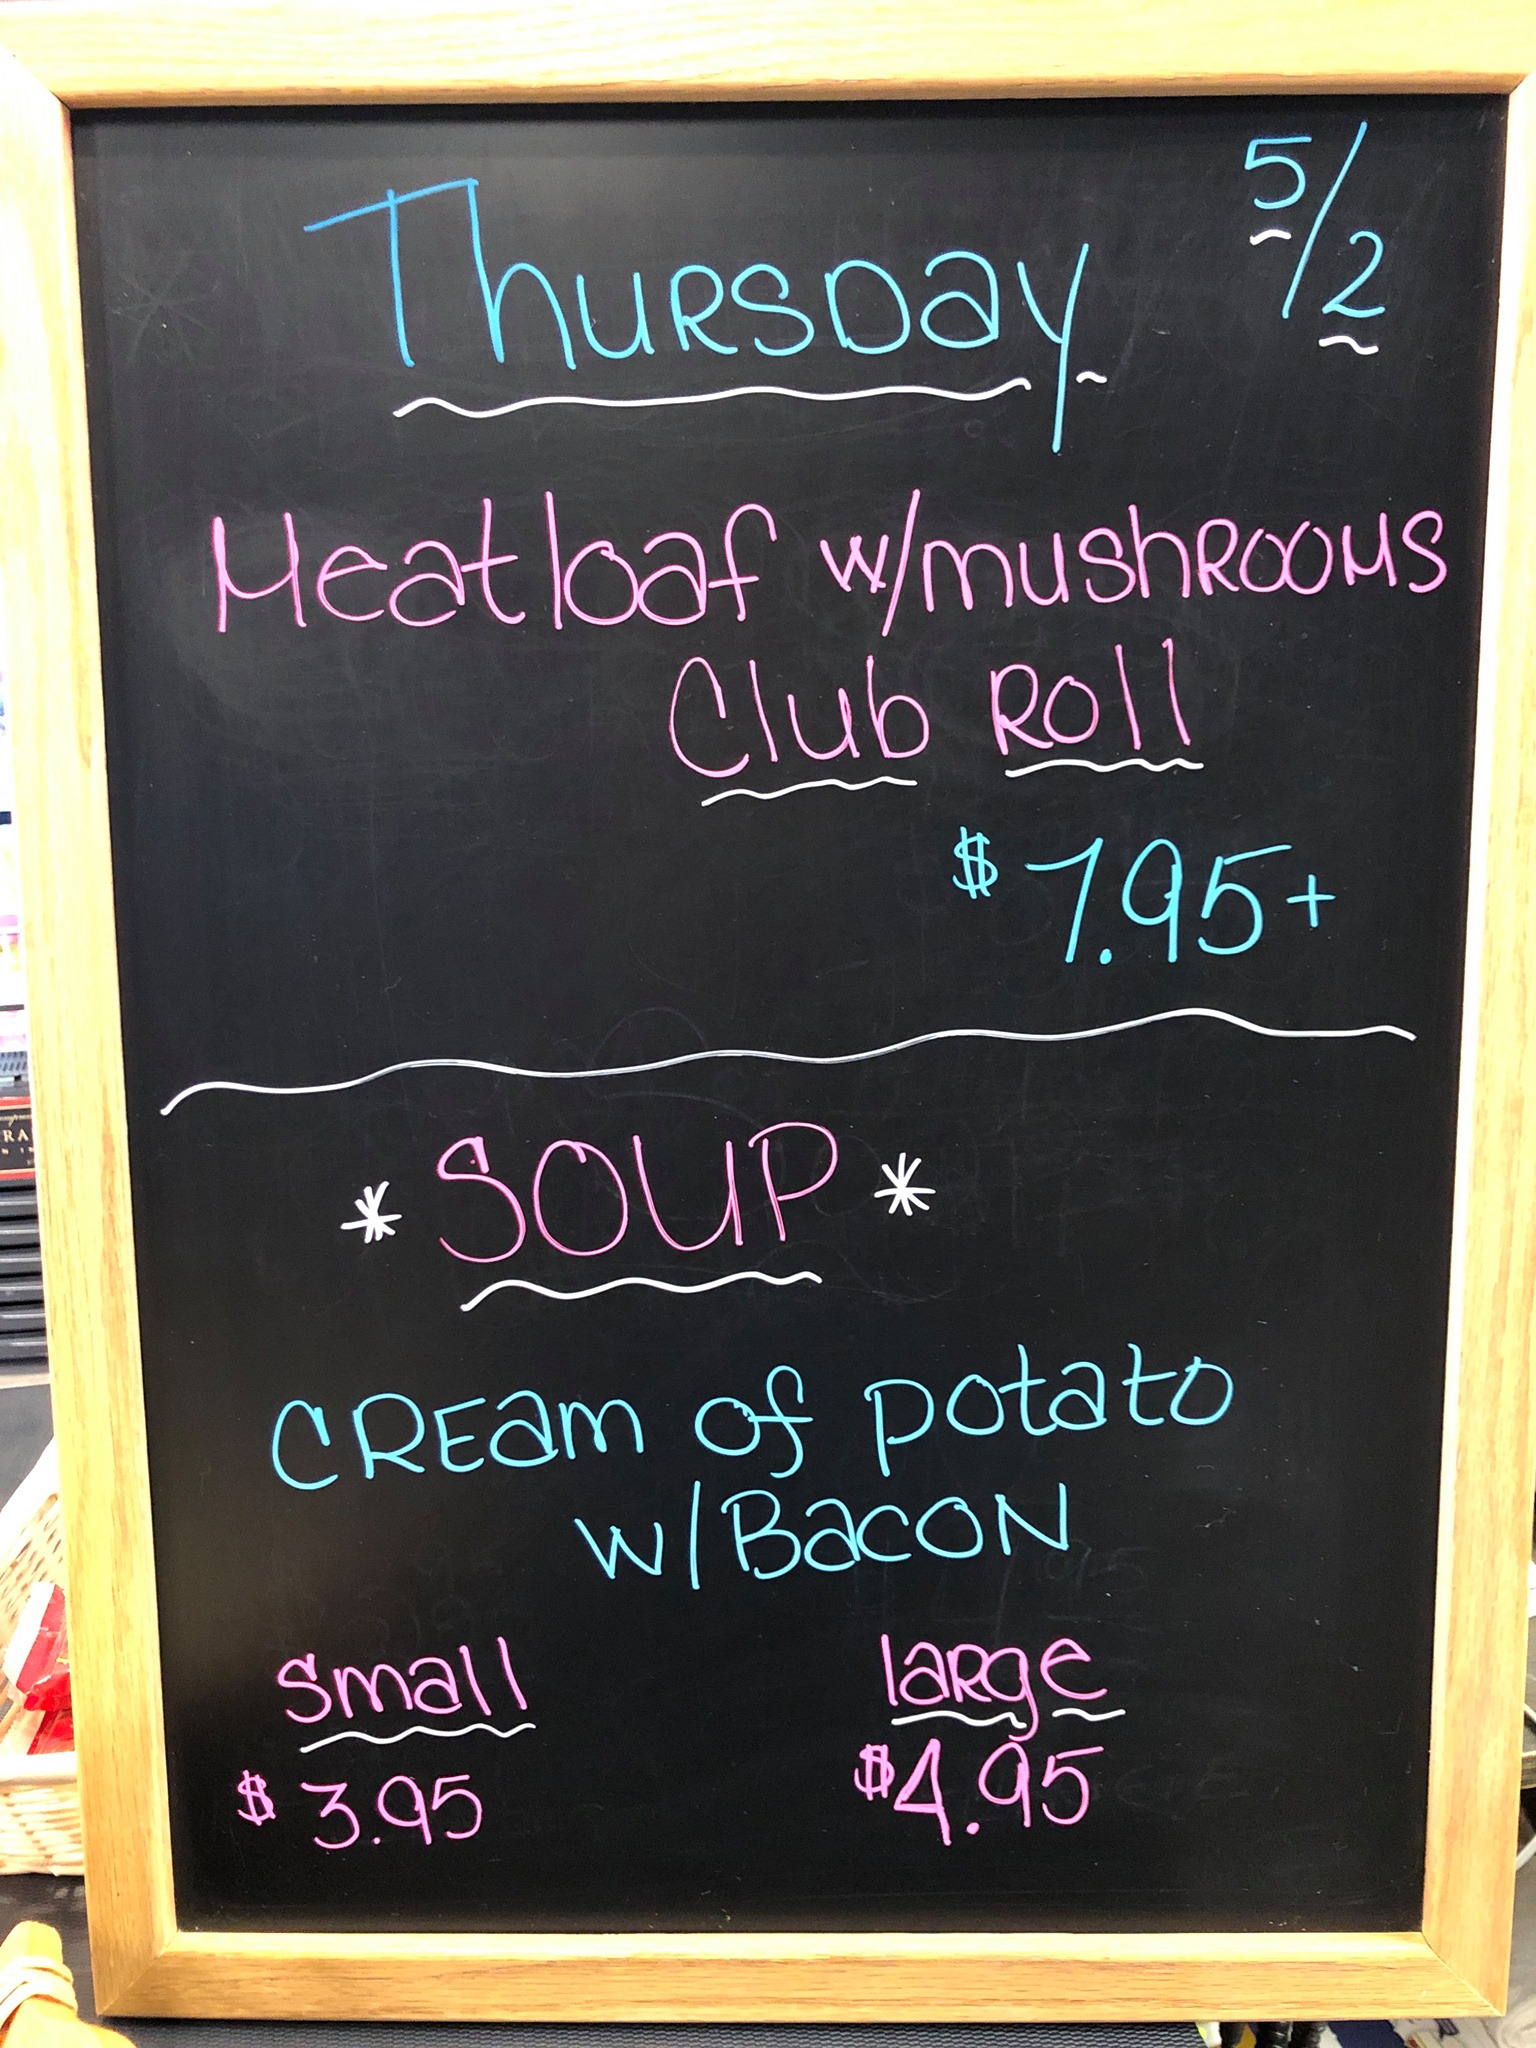 Thursday 5/2
Meatloaf w/mushrooms
Club Roll
$7.95+
* SOUP *
Cream of potato
w/Bacon
small large
$3.95 $4.95